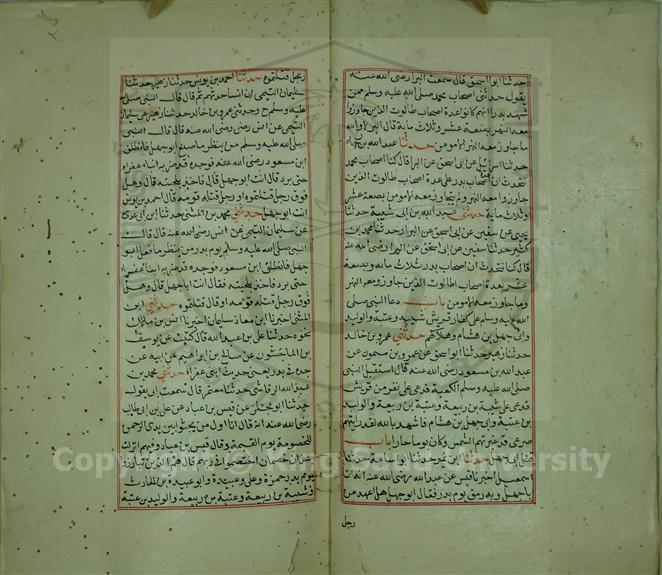 حدثنا ابو اسحق قال سمعت البرا رضى الله عنه
يقول حدثنى اصحاب محمد صلى الله عليه وسلم ممن
شهد بدرا انهم كانوا عدة اصحاب طالوت الذين جازوا
معه النهر بضعة عشر وثلاث ماية قال البرا لا والله
ما جاوز معه النهر الا مومن حدثنا عبد الله بن رجاء
حدثنا اسرائل عن ابى اسحق عن البرا قال كنا اصحاب محمد
نتحدث ان عدة اصحاب بدر على عدة اصحاب طالوت الذين
جاوزوا معه النهر ولم يتجاوز معه الا مومن بضعة عشر
وثلاث ماية حدثنى عبد الله بن ابى شيبة حدثنا
يحيى عن سفين عن ابى اسحق عن البرا وحدثنا محمد بن
كثير حدثنا سفين عن ابى اسحق عن البرا رضى الله عنه
قال كنا نتحدث ان اصحاب بدر ثلاث مايه وبضعة
عشر بعدة اصحاب طالوت الذين جاوزوا معه النهر
وما جاوز معه الا مومن باب دعا النبى صلى
الله عليه وسلم على كفار قريش شيبه وعتبة والوليد
وابى جهل بن هشام وهلاكهم حدثنى عمرو بن خالد
حدثنا زهير حدثنا ابو اسحق عن عمرو بن ميمون عن
عبد الله بن مسعود رضى الله عنه قال استقبل النبى
صلى الله عليه وسلم الكعبة فدعى على نفر من قريش
على شيبة بن ربيعة وعتبة بن ربيعة والوليد
بن عتبة وابى جهل بن هشام فاشهد بالله لقد رايتهم
صرعى قد غيرتهم الشمس وكان يوما حارا باب
قتل ابى جهل حدثنا ابن نمير حدثنا ابو اسامة حدثنا
اسمعيل اخبرنا قيس عن عبد الله رضى الله عنه انه اتى
ابا جهل وبه رمق يوم بدر فقال ابو جهل هل اعمد من
رجل
رجل قتلتموه حدثنا احمد بن يونس حدثنا زهير حدثنا
سليمان التيمى ان انسا حدثهم قال قال النبى صلى الله
عليه وسلم ح وحدثنى عمرو بن خالد حدثنا زهير عن سليمان
التيمى عن انس رضى الله عنه قال قال النبى
صلى الله عليه وسلم من ينظر ما صنع ابو جهل فانطلق
ابن مسعود رضى الله عنه فوجده قد ضربه ابنا عفراء
حتى برد قال اانت ابو جهل قال فاخذ بلحيته قال وهل
فوق رجل قتلتموه او رجل قتله قومه قال احمد بن يونس
انت ابو جهل حدثنى محمد بن المثنى حدثنا ابن ابى عدى
عن سليمان التيمى عن انس رضى الله عنه قال قال
النبى صلى الله عليه وسلم يوم بدر من ينظر ما فعل ابو
جهل فانطلق ابن مسعود فوجده قد ضربه ابنا عفراء
حتى برد فاخذ بلحيته فقال انت ابا جهل قال وهل
فوق رجل قتله قومه او قال قتلتموه حدثنى ابن
المثنى اخبرنا ابن معاذ حدثنا سليمان اخبرنا انس بن مالك
نحوه حدثنا على بن عبد الله قال كتبت عن يوسف
بن الماجشون عن صالح بن ابراهيم عن ابيه عن
جده فى بدر يعنى حديث ابنى عفراء حدثنى محمد بن
عبد الله الرقاشى حدثنا معتمر قال سمعت ابى يقول
حدثنا ابو مجلز عن قيس بن عباد عن على بن ابى طالب
رضى الله عنه انه قال انا اول من يجثو بين يدى الرحمن
للخصومة يوم القيمة وقال قيس بن عباد وفيهم انزلت
هذان خصمان اختصموا فى ربهم قال هم الذين تبارزوا
يوم بدر حمزة وعلى وعبيدة او ابو عبيدة بن الحارث
وشيبة بن ربيعة وعتبة بن ربيعة والوليد بن عتبة